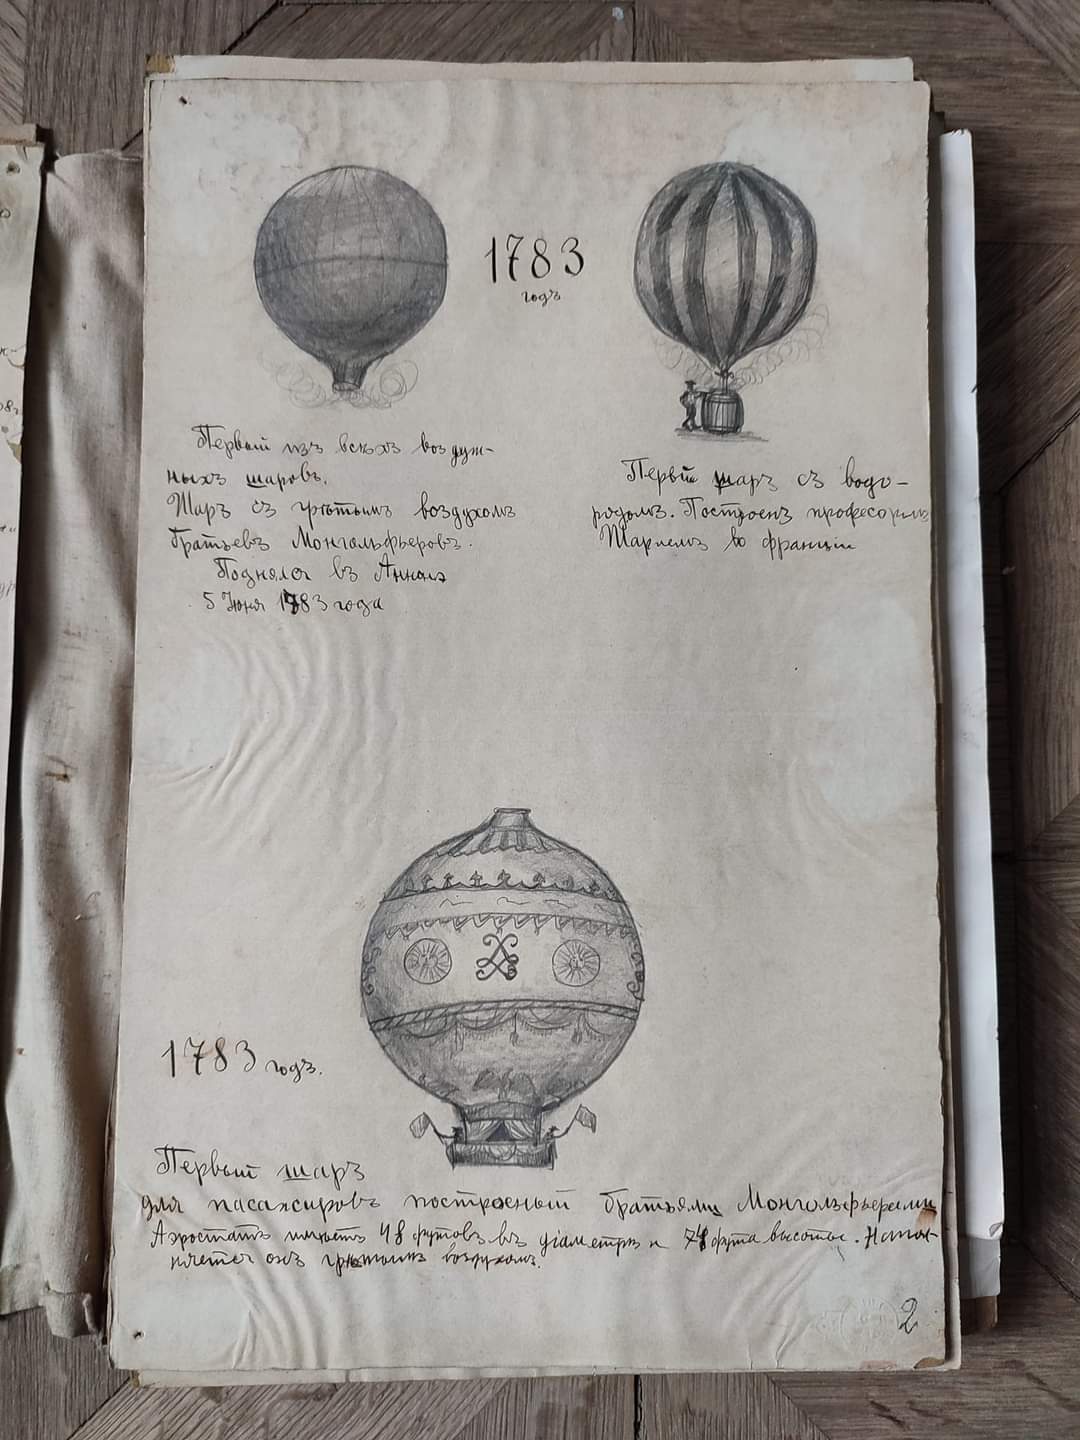 1783
годъ
Первый изъ всѣхъ воздуш-
ныхъ шаровъ.
Шаръ съ грѣтымъ воздухомъ
братьевъ Монгольфьеровъ.
Поднялся въ Аннонэ
5 Июня 1783 года
Первый шаръ съ водо-
родомъ. Построенъ професоромъ
Шарлемъ во франціи
1783 годъ.
Первый шаръ
для пасажировъ построеный братьями Монгольфьерами
Аэростатъ имѣетъ 48 футовъ въ діаметрѣ и 74 фута высоты. Напол-
няется онъ грѣтымъ воздухомъ.
2